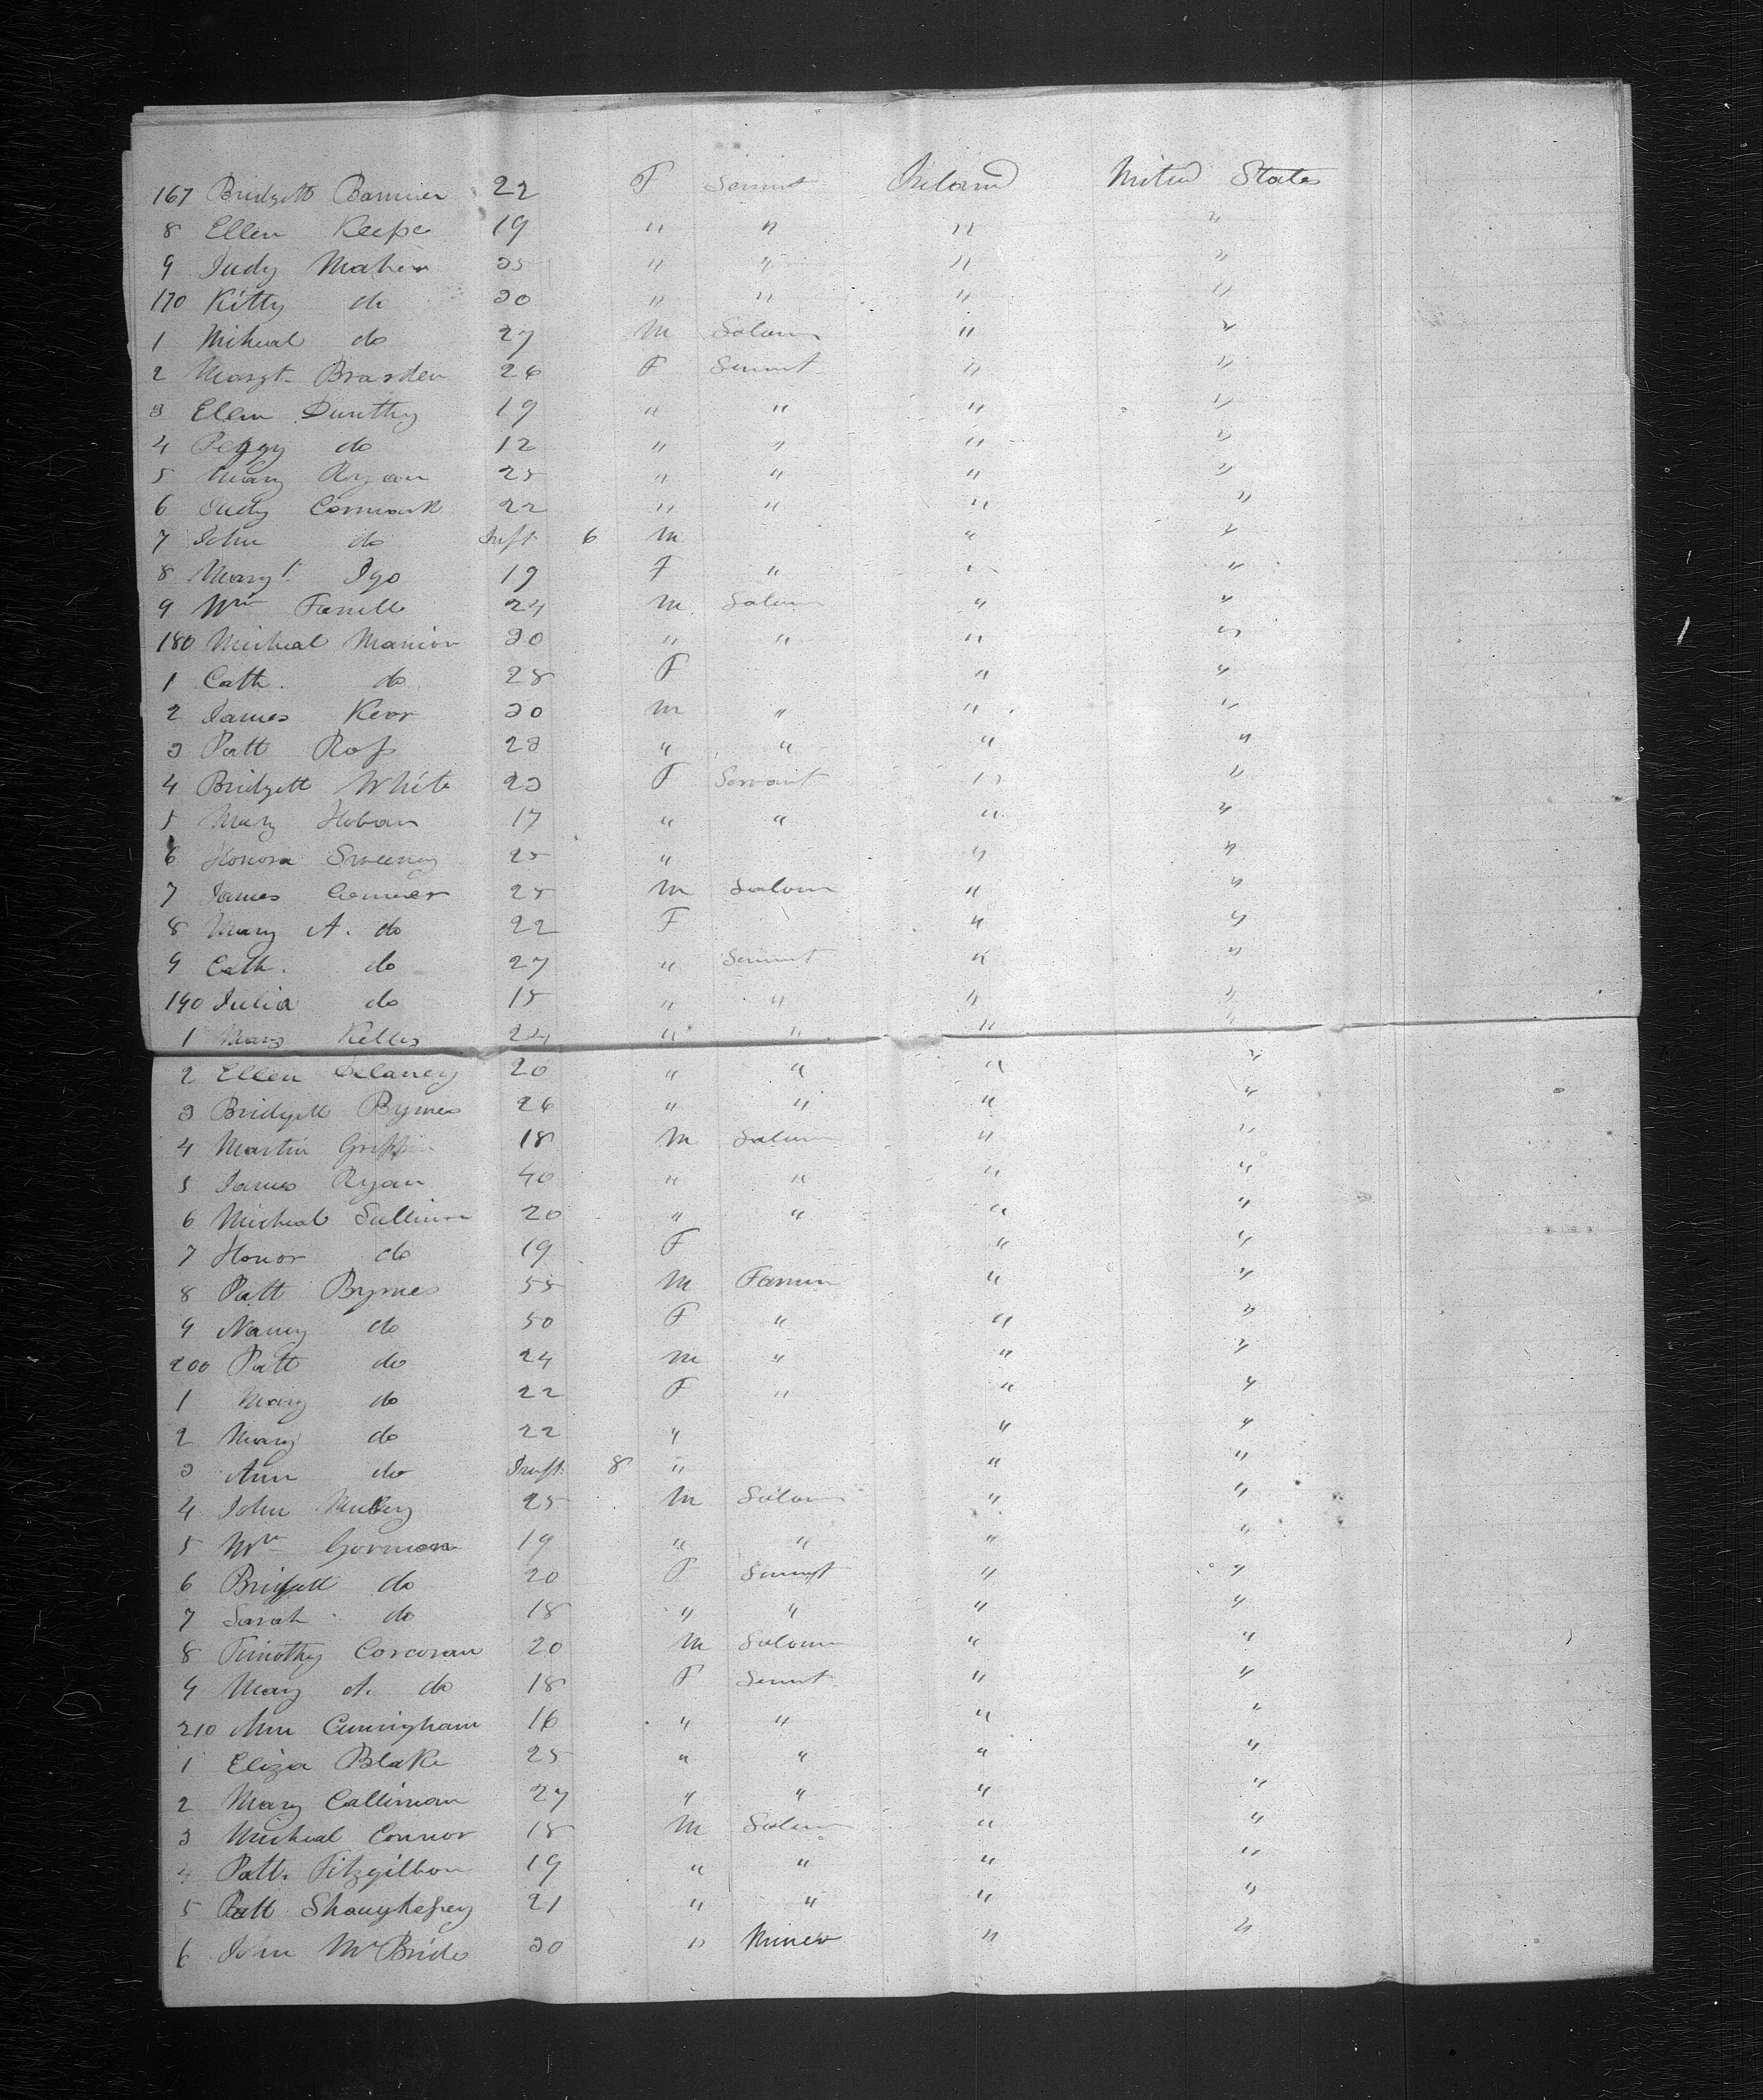 167 Bridgett Bannier 22 F Servnt Ireland United States
8 Ellen Keefe 19 " " " "
9 Judy Maher 25 " " " "
170 Kitty do 30 " " " "
1 Miheal do 27 M Labour " "
2 Margt. Brasden 26 F Servnt " "
3 Ellen 19 " " " "
4 Peggy do 12 " " " "
5 Mary Ryan 25 " " " "
6 Judy Cormack 22 " " " "
7 John do Inft 6 M " "
8 Margt. Igo 19 F " " "
9 Wm Farrell 24 M Labour " "
180 Micheal Manion 30 " " " "
1 Cath. do 28 F " "
2 James Keor 30 M " " "
3 Patt Ross 23 " " " "
4 Bridgett White 23 F Servant " "
5 Mary Hoban 17 " " " "
6 Honora Sweeney 25 " " "
7 James Conner 25 M Labour " "
8 Mary A. do 22 F " "
9 Cath. do 27 " Servnt " "
190 Julia do 15 " " " "
1 Mary Kelley 24 " " " "
2 Ellen Delaney 20 " " " "
3 Bridgett Byrnes 26 " " " "
4 Martin Griffin 18 M Labour " "
5 James Ryan 40 " " " "
6 Micheal Sullivan 20 " " " "
7 Honor do 19 F " "
8 Patt Byrnes 55 M Farmer " "
9 Nancy do 50 F " " "
200 Patt do 24 M " " "
1 Mary do 22 F " " "
2 Mary do 22 " " "
3 Ann do Inft. 8 " " "
4 John 25 M Labour " "
5 Wm Gorman 19 " " " "
6 Bridgett do 20 F Servnt " "
7 Sarah do 18 " " " "
8 Timothy Corcoran 20 M Labour " "
9 Mary A. do 18 F Servnt " "
210 Ann Cuningham 16 " " " "
1 Eliza Blake 25 " " " "
2 Mary Callinan 27 " " " "
3 Micheal Connor 18 M Labour " "
4 Patt. Fitzgibbon 19 " " " "
5 Patt 21 " " " "
6 John McBride 30 " Miner " "